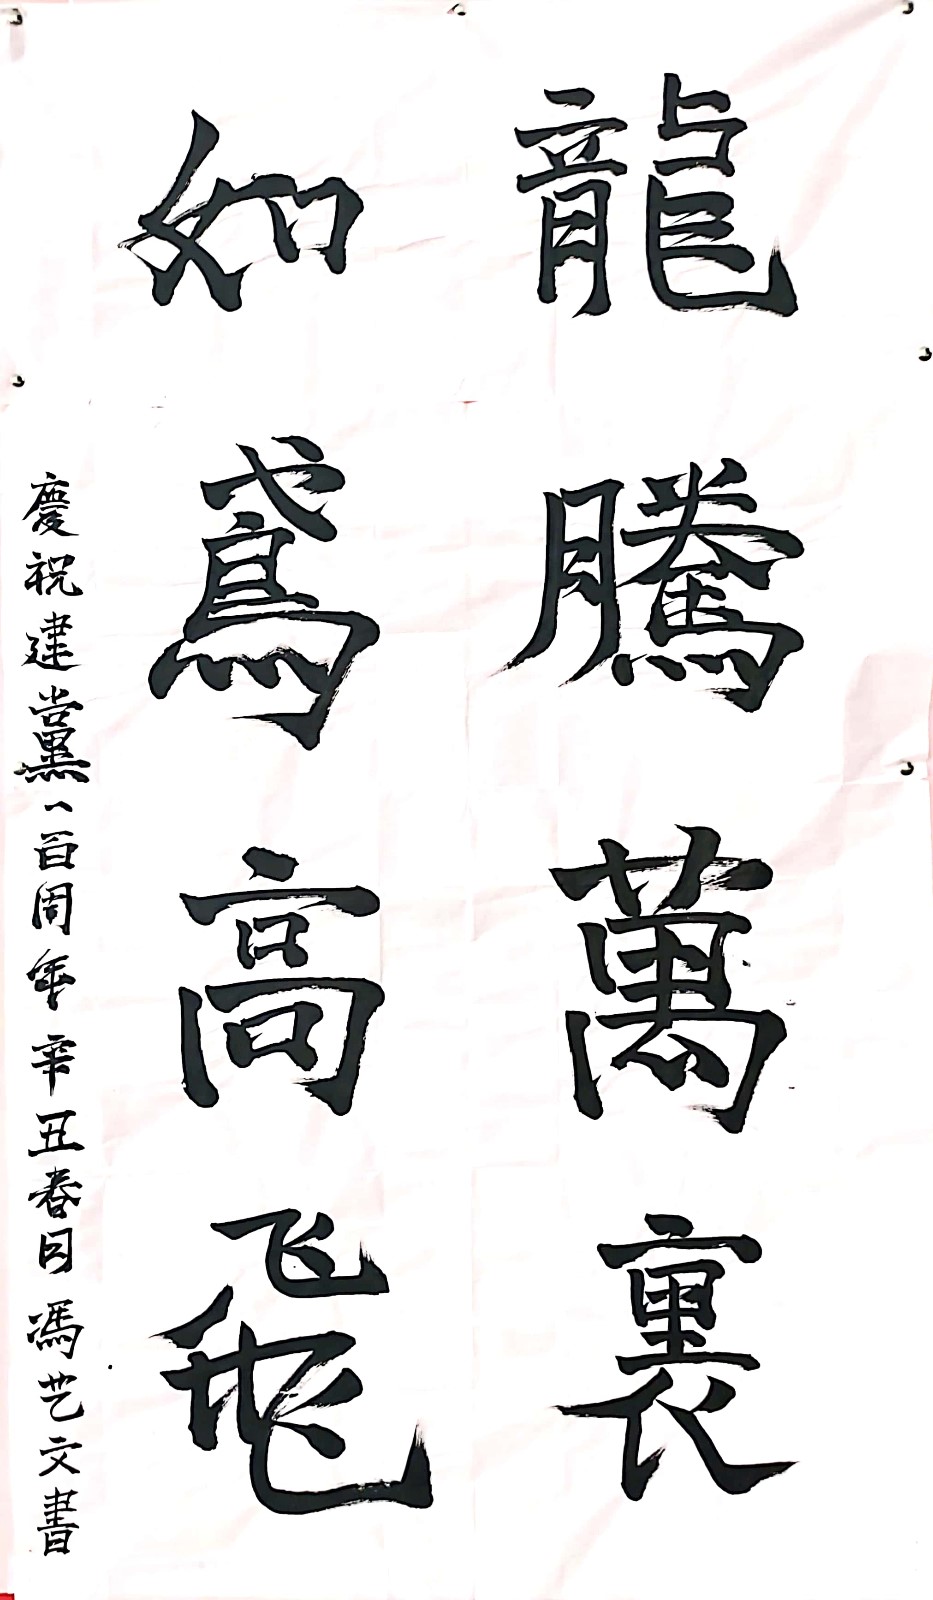 龍騰萬裏
如鳶高飛
慶祝建黨一百周年辛丑春日馮艺文書